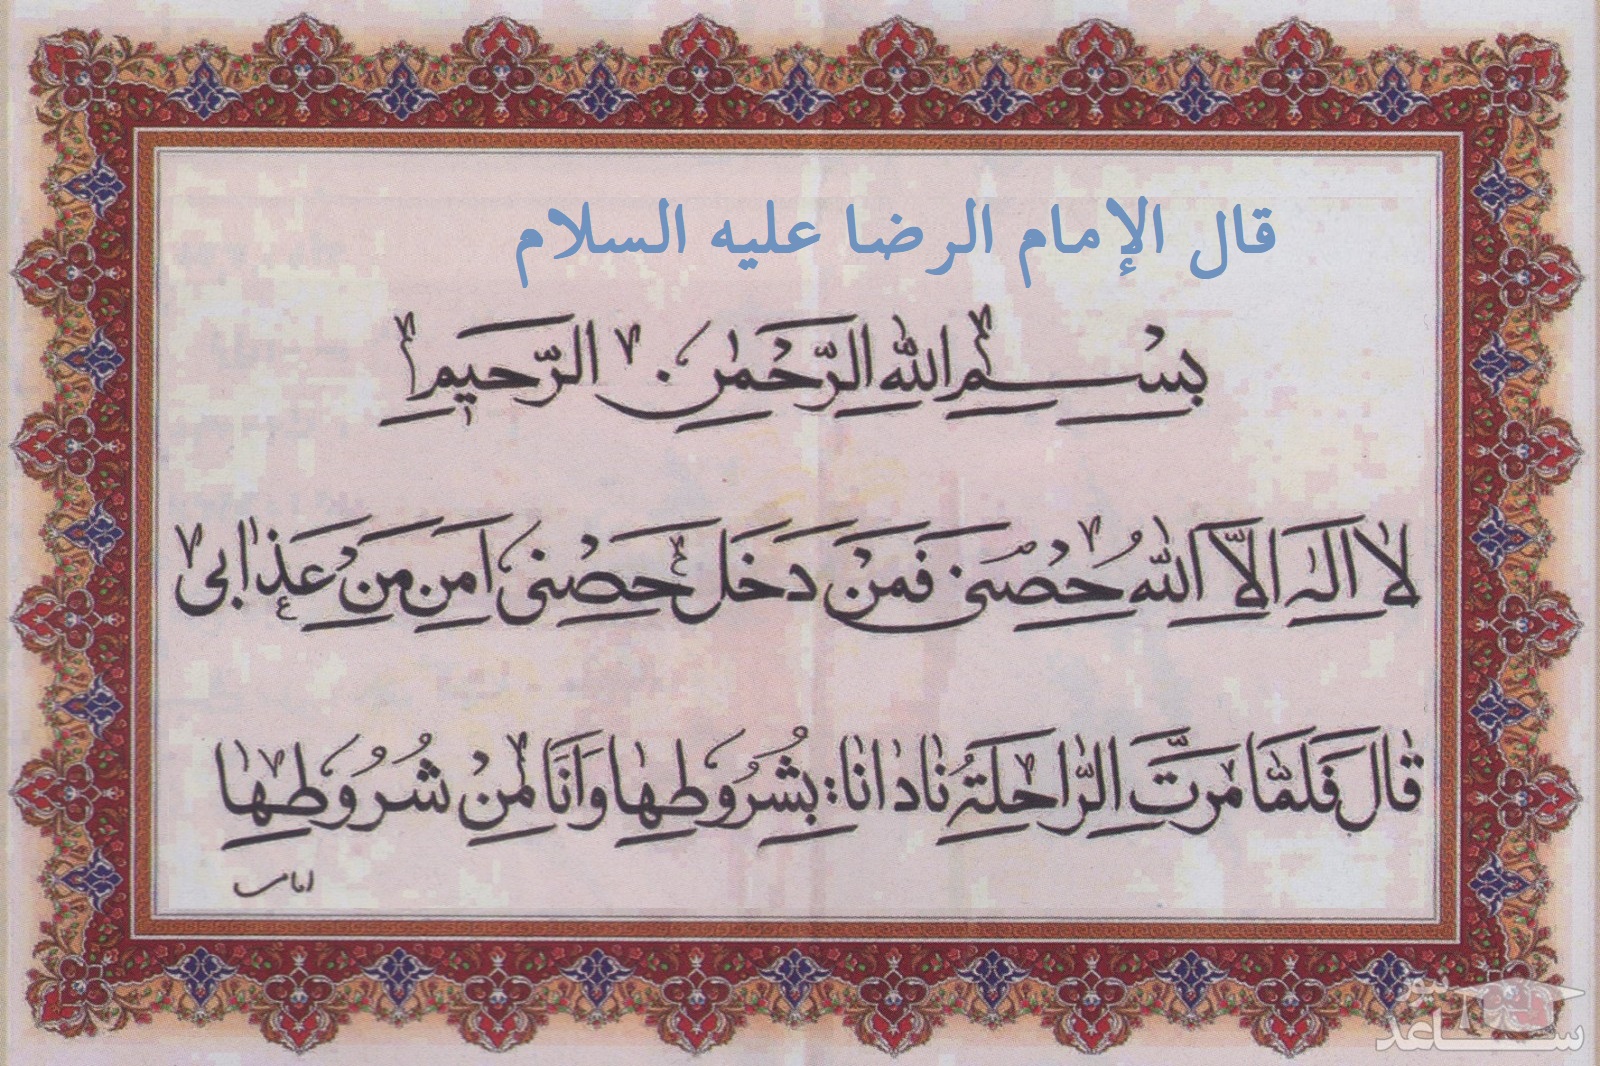 قال الإمام الرضا عليه السلام
بِسْمِ اللّٰهِ الرَّحْمٰنِ الرَّحيمِ
لا اِلٰهَ اِلاَّ اللّٰهُ حِصْنى فَمَنْ دَخَلَ حِصْنى اَمِنَ مِنْ عَذابى
قالَ فَلَمّا مَرَّتِ الرّاحِلَةُ نادانا: بِشُرُوطِها وَاَنَا مِنْ شُرُوطِها
نیوز
ساعد